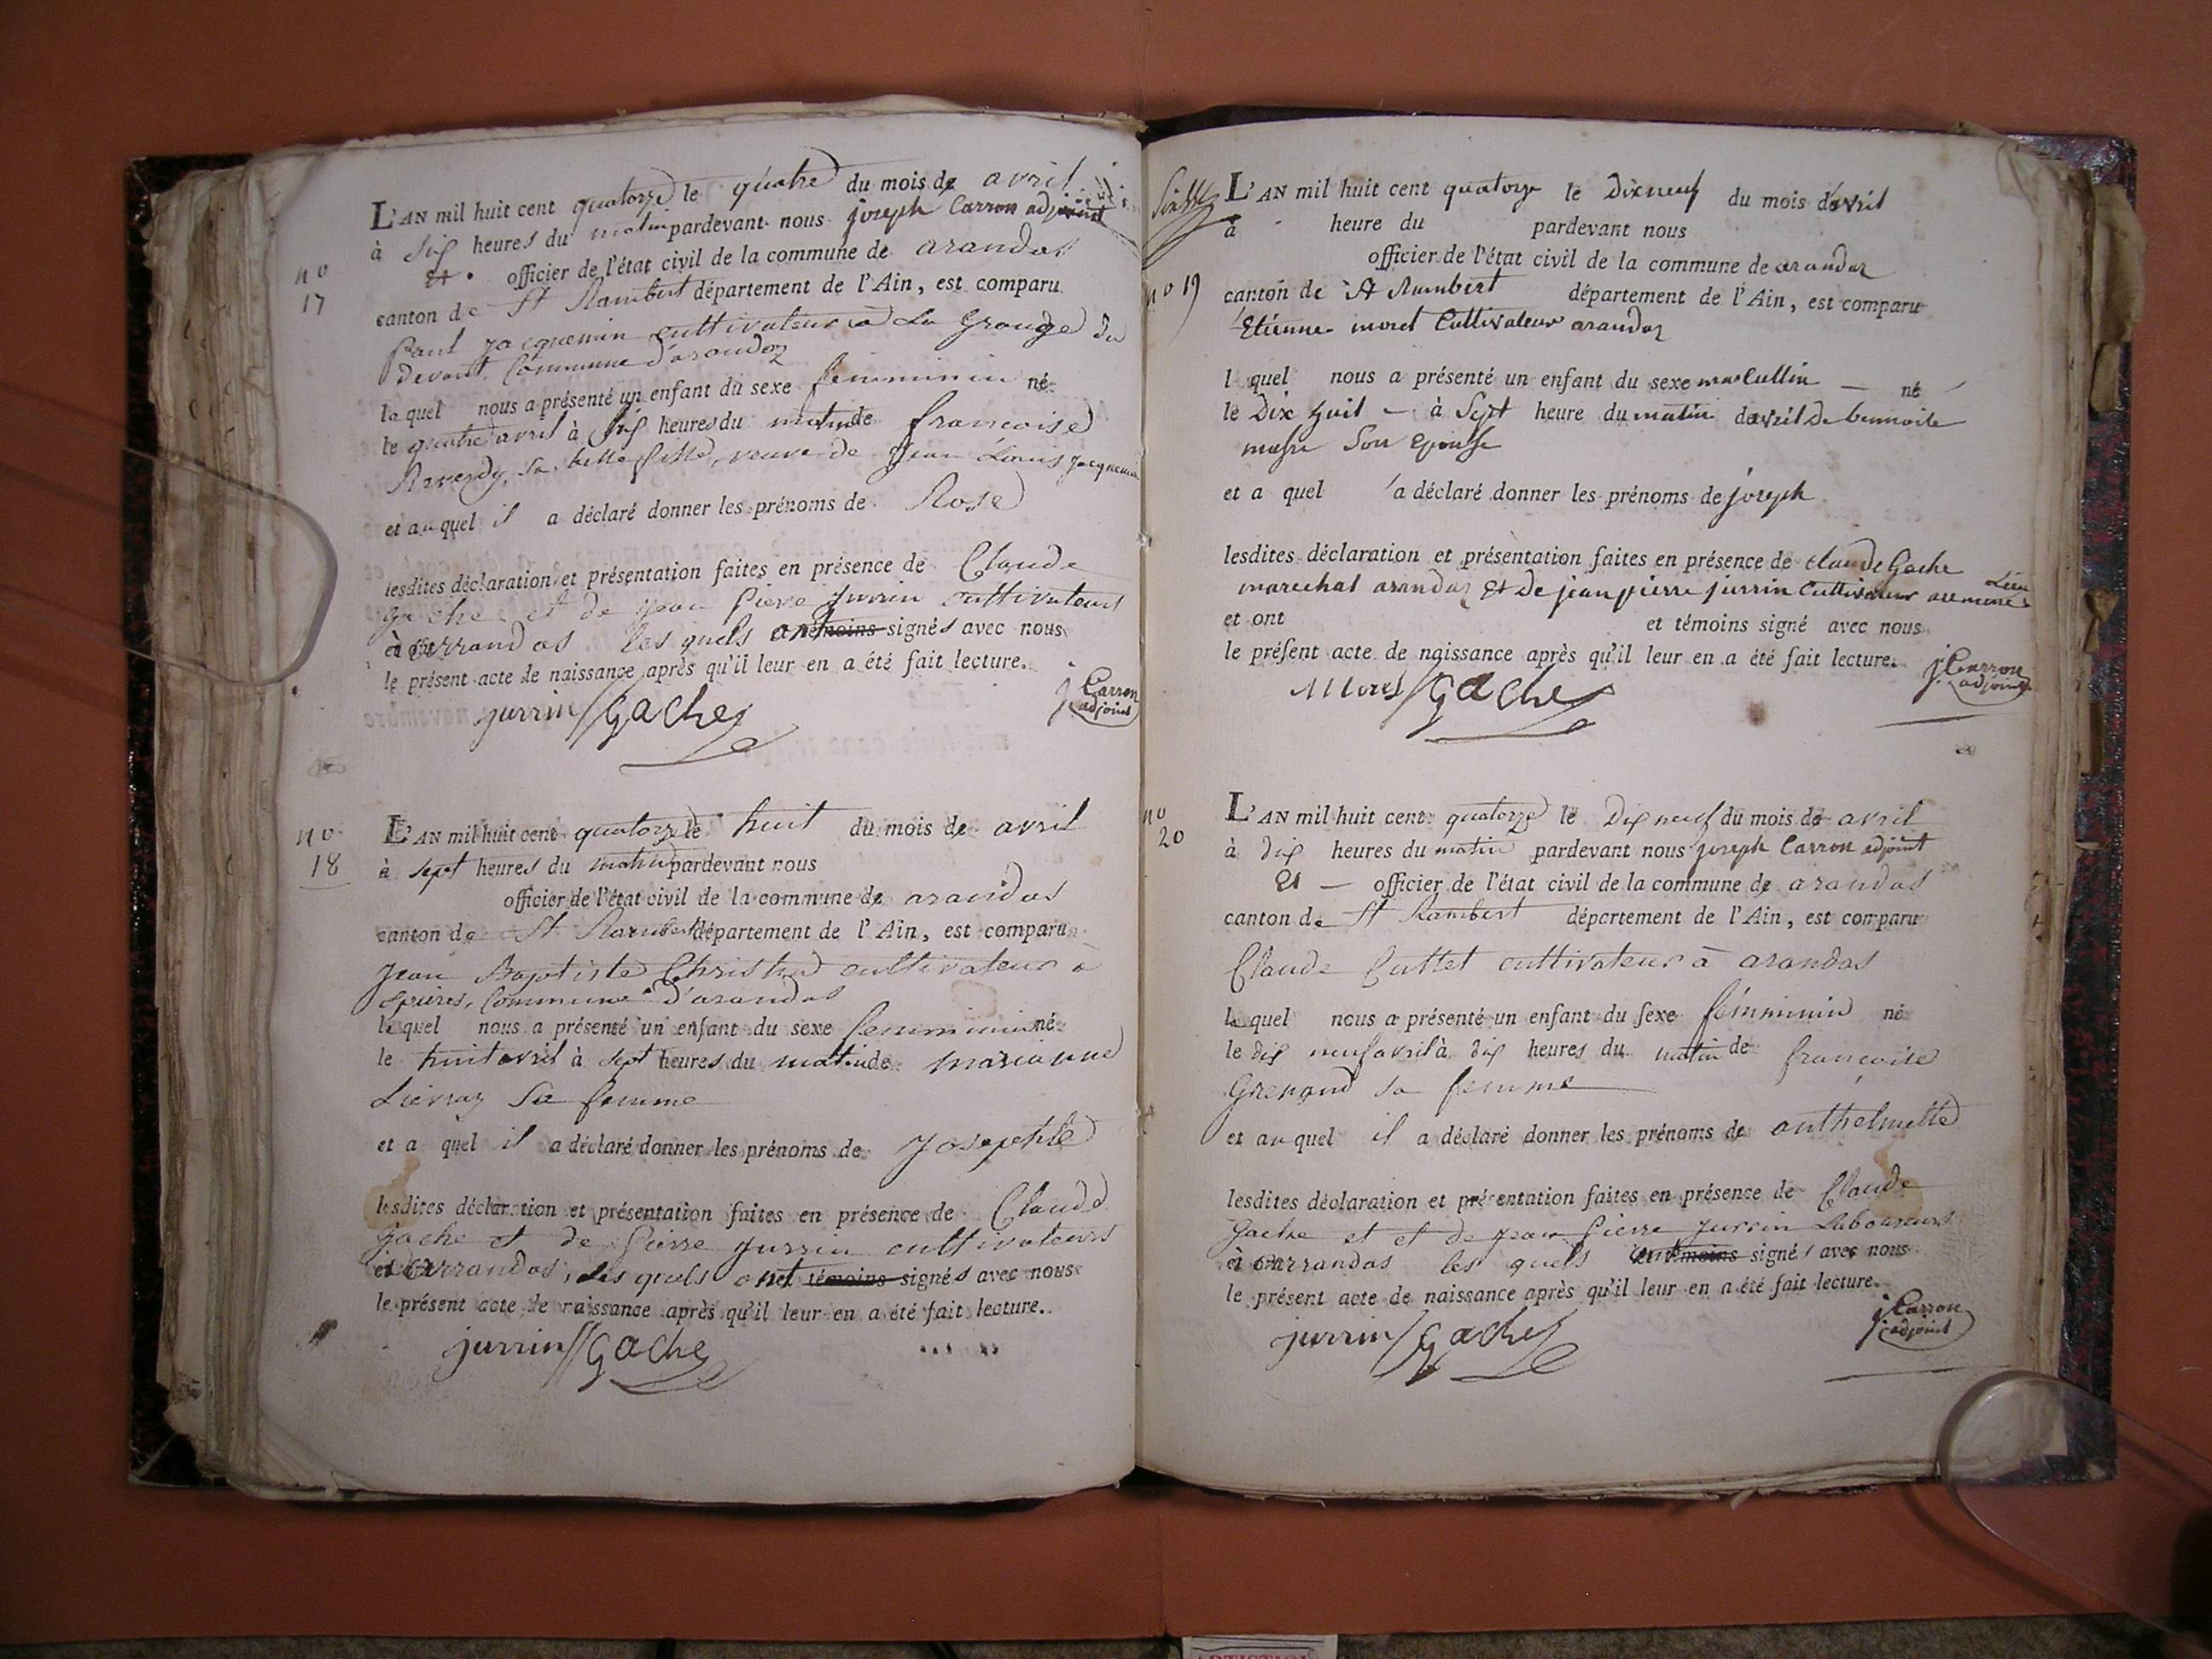 L'AN mil huit cent quatorze le quatre du mois de avril
à six heures du matin pardevant nous joseph Carron adjoint
officier de l'état civil de la commune de arandas
n° 17
canton de St Rambert département de l'Ain, est comparu
Paul jacquemin cultivateur à La Grange du
devant Commune d'arandaz
le quel nous a présenté un enfant du sexe femminin né
le quatre avril à six heures du matin de francoise
Ravendy, sa belle fille, veuve de Jean Louis jacquemin
et au quel il a déclaré donner les prénoms de Rose
lesdites déclaration et présentation faites en présence de Claude
gache et de jean Piere Jurrin cultivateurs
à arrandas les quels ont témoins signés avec nous
le présent acte de naissance après qu'il leur en a été fait lecture.
jurrin Gache j. Carron
adjoint
n° 18
L'AN mil huit cent quatorze le huit du mois de avril
à sept heures du matin pardevant nous
officier de l'état civil de la commune de arandas
canton de St Rambert département de l'Ain, est comparu
Jean Baptiste Christin cultivateur à
Commune d'arandas
le quel nous a présenté un enfant du sexe femminin né
le huit avril à sept heures du matin de marianne
Lievraz Sa femme
et a quel il a déclaré donner les prénoms de Josephte
lesdites déclaration et présentation faites en présence de Claude
Gache et de Pierre Jurrin cultivateurs
à arrandas, les quels ont témoins signés avec nous
le présent acte de naissance après qu'il leur en a été fait lecture.
jurrin Gache
L'AN mil huit cent quatorze le Dix neuf du mois d'avril
à heure du pardevant nous
officier de l'état civil de la commune de arandaz
n° 19
canton de St Rambert département de l'Ain, est comparu
Etienne moret Cultivateur arandaz
l quel nous a présenté un enfant du sexe masCullin — né
le Dix huit — à Sept heure du matin davril De bennoite
Son Epouse
et a quel a déclaré donner les prénoms de joseph
lesdites déclaration et présentation faites en présence de claude Gache
marechal arandaz Et De jean pierre jurrin Cultivateur
et ont et témoins signé avec nous
le présent acte de naissance après qu'il leur en a été fait lecture.
Moret Gache j. Carron
adjoint
n° 20
L'AN mil huit cent quatorze le Dix neuf du mois de avril
à dix heures du matin pardevant nous joseph Carron adjoint
Et — officier de l'état civil de la commune de arandas
canton de St Rambert département de l'Ain, est comparu
Claude Cuttet cultivateur à arandas
le quel nous a présenté un enfant du sexe femminin né
le dix neuf avril à dix heures du matin de francoise
Grenand sa femme
et au quel il a déclaré donner les prénoms de anthelmette
lesdites déclaration et présentation faites en présence de Claude
Gache et et de jean Pierre jurrin Laboureurs
à arrandas les quels ont témoins signés avec nous
le présent acte de naissance après qu'il leur en a été fait lecture.
jurrin Gache j. Carron
adjoint